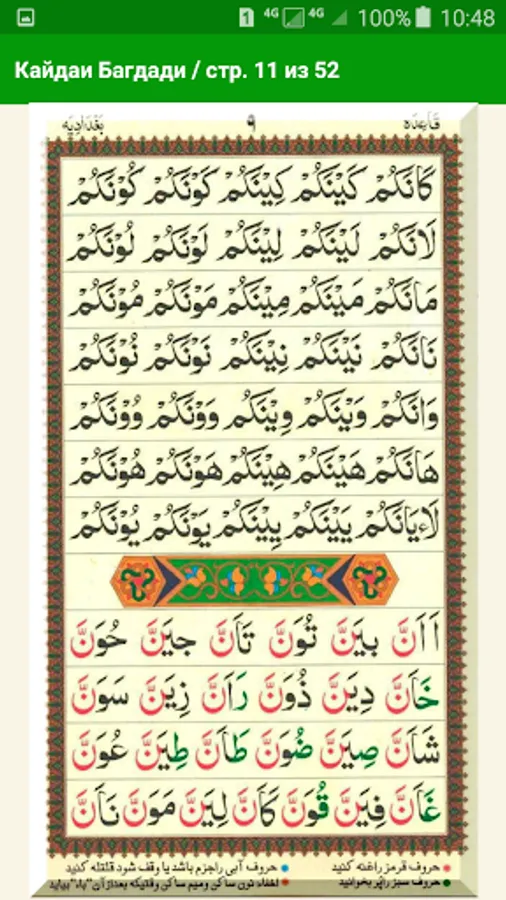 1 4G 4G 100% 10:48
Кайдаи Багдади / стр. 11 из 52
قاعده ۹ بغدادیه
كَانَكُمْ كَيْنَكُمْ كِيْنَكُمْ كَوْنَكُمْ كُوْنَكُمْ
لَانَكُمْ لَيْنَكُمْ لِيْنَكُمْ لَوْنَكُمْ لُوْنَكُمْ
مَانَكُمْ مَيْنَكُمْ مِيْنَكُمْ مَوْنَكُمْ مُوْنَكُمْ
نَانَكُمْ نَيْنَكُمْ نِيْنَكُمْ نَوْنَكُمْ نُوْنَكُمْ
وَانَكُمْ وَيْنَكُمْ وِيْنَكُمْ وَوْنَكُمْ وُوْنَكُمْ
هَانَكُمْ هَيْنَكُمْ هِيْنَكُمْ هَوْنَكُمْ هُوْنَكُمْ
لاءيَانَكُمْ يَيْنَكُمْ يِيْنَكُمْ يَوْنَكُمْ يُوْنَكُمْ
اَانَّ بِيَنَّ تُوَنَّ ثَانَّ جِيَنَّ حُوَنَّ
خَانَّ دِيَنَّ ذُوَنَّ رَانَّ زِيَنَّ سَوَنَّ
شَانَّ صِيَنَّ ضُوَنَّ طَانَّ طِيَنَّ عُوَنَّ
غَانَّ فِيَنَّ قُوَنَّ كَانَّ لِيَنَّ مَوَنَّ نَانَّ
حروف قرمز راغنه کنید حروف آبی راجزم باشد یا وقف شود قلقله کنید
حروف سبز راپر بخوانید اخفاء نون ساکن ومیم ساکن وقتیکه بعداز آن "باء" بیاید